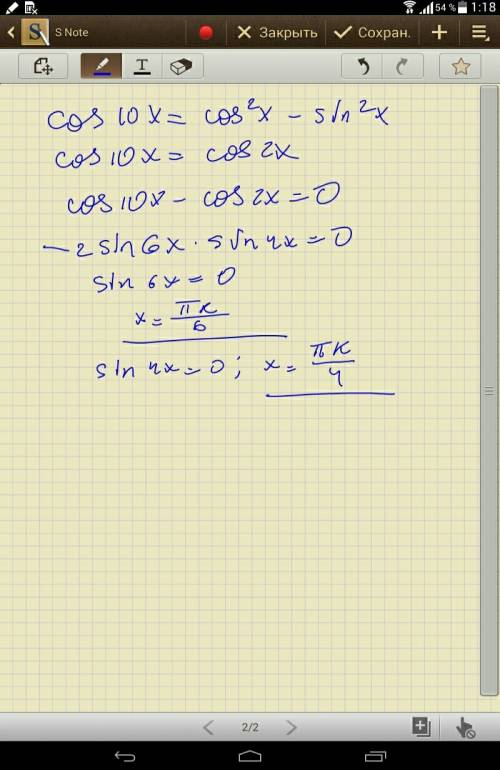 54 % 1:18
S Note Закрыть Сохран.
cos 10x = cos²x - sin²x
cos 10x = cos 2x
cos 10x - cos 2x = 0
-2 sin 6x · sin 4x = 0
sin 6x = 0
x = πk/6
sin 4x = 0; x = πk/4
2/2